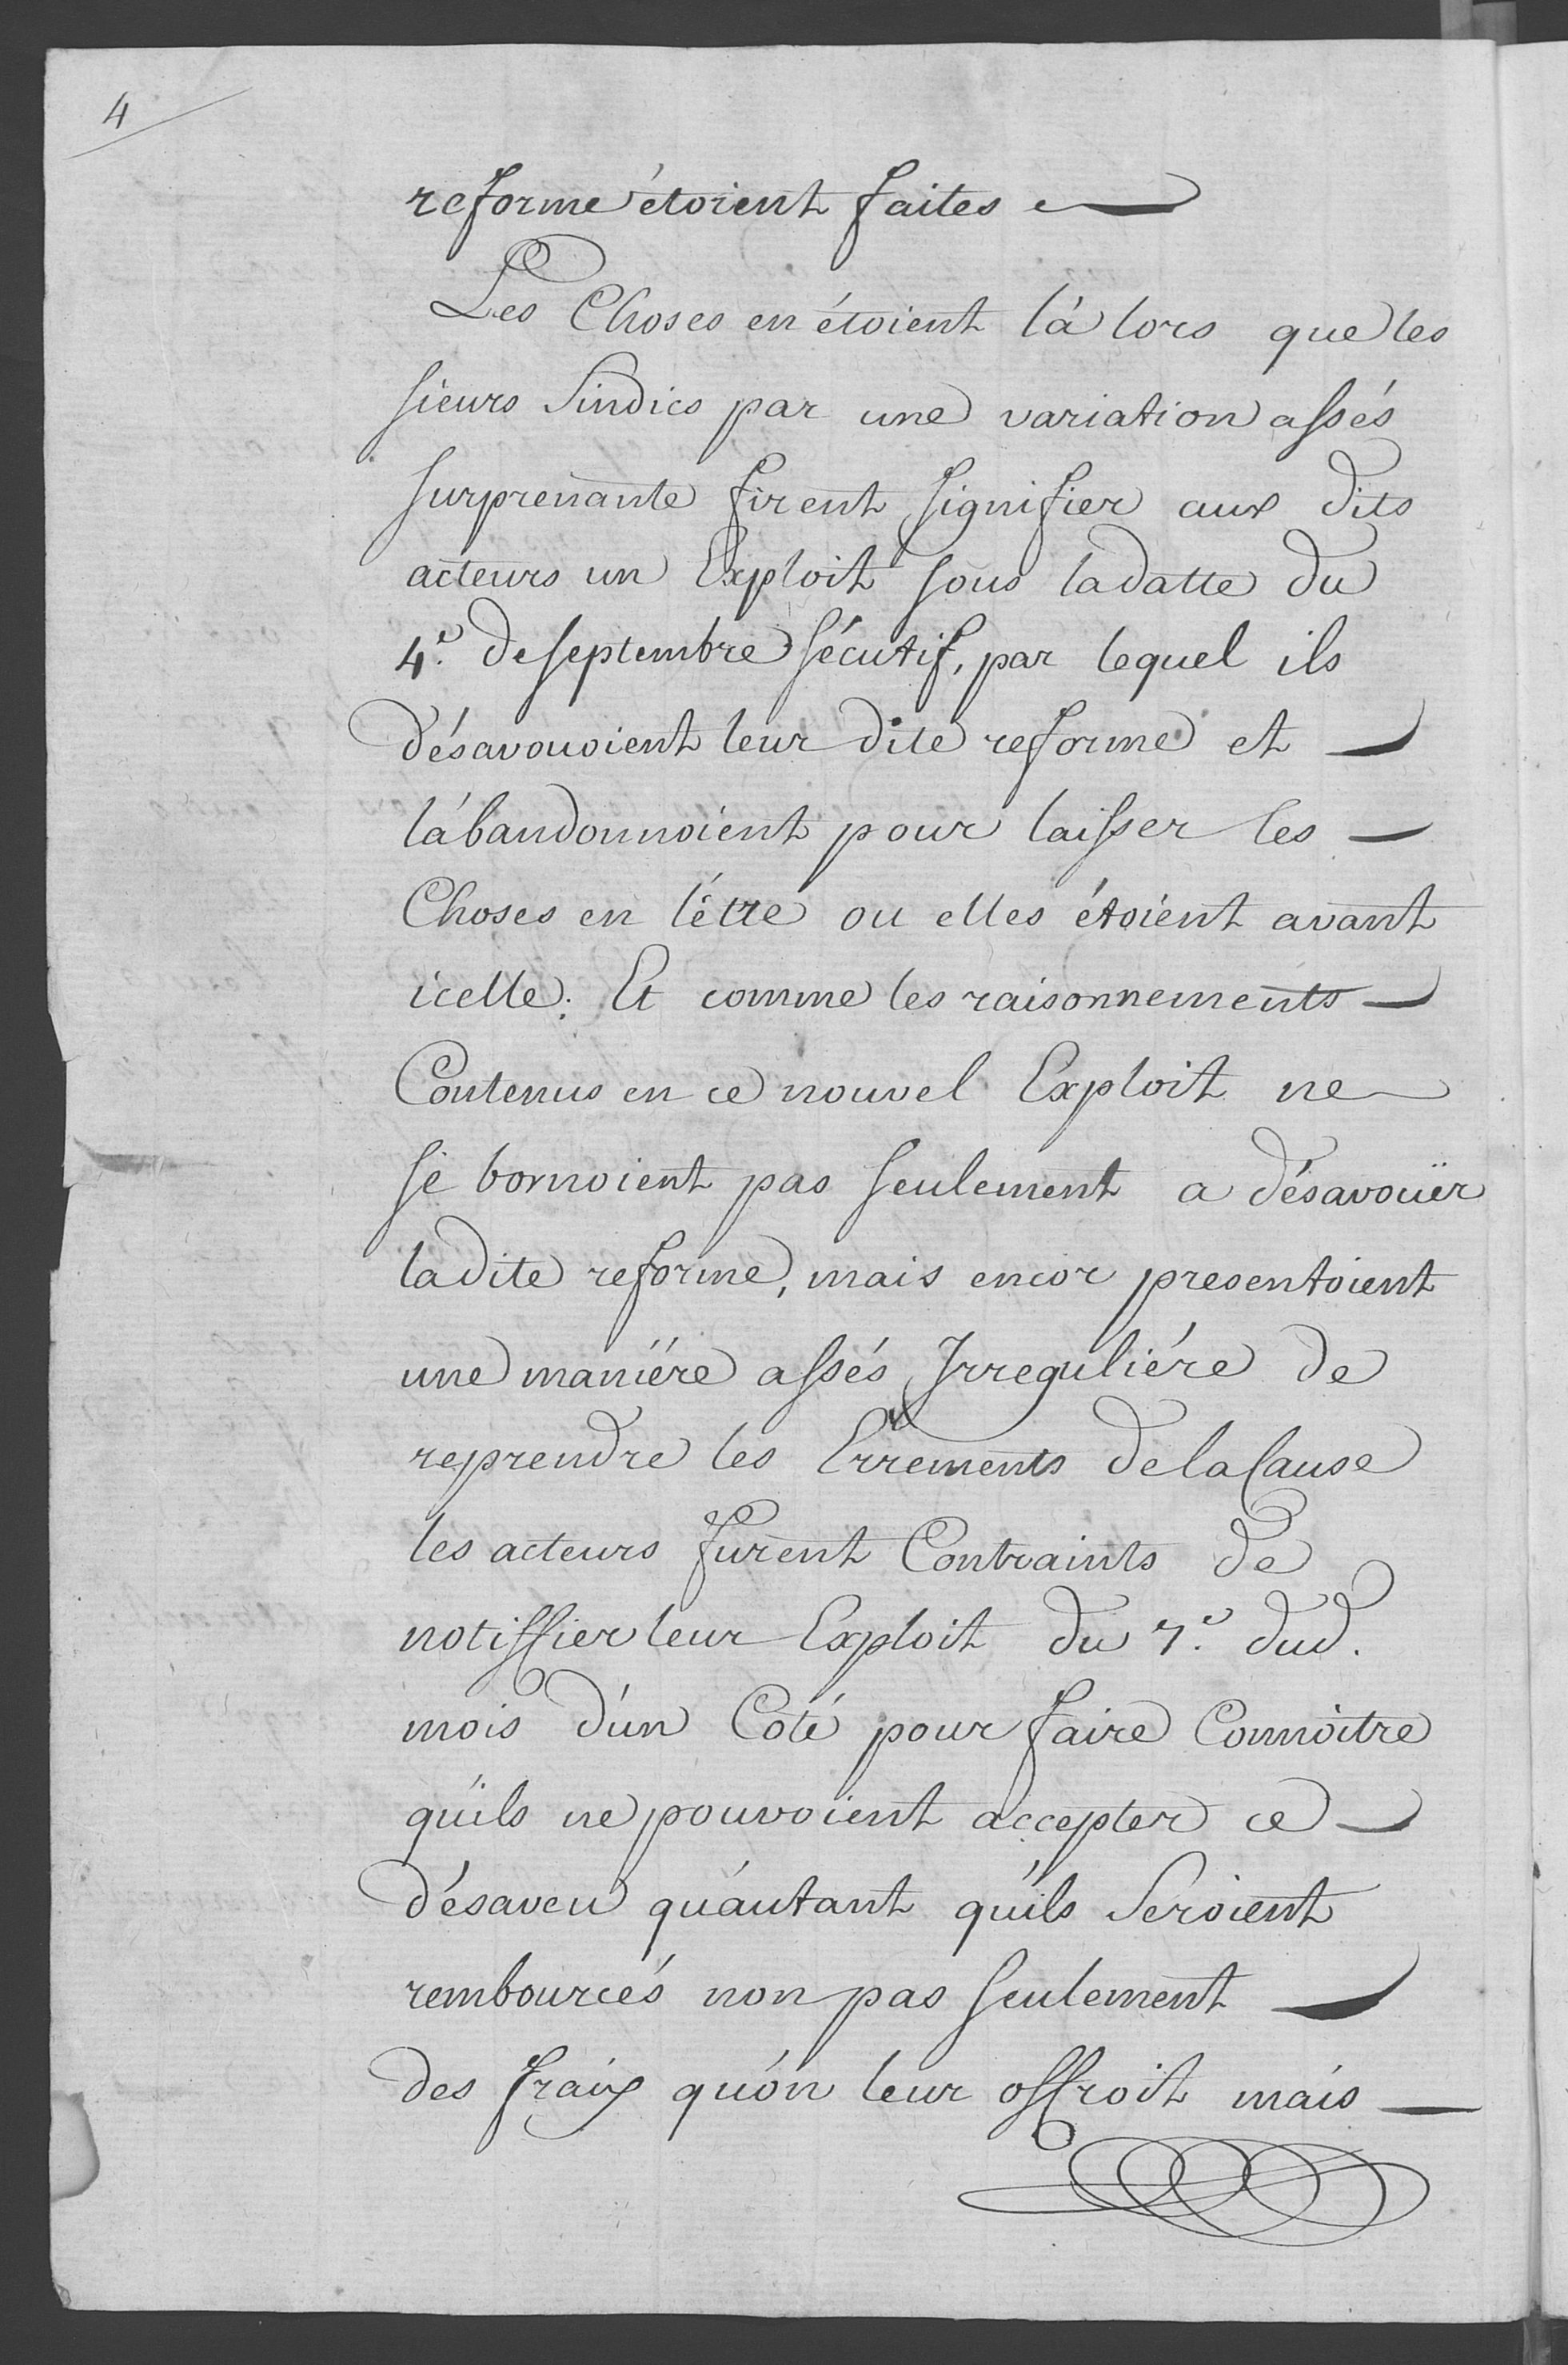 4
reforme étoient faites
Les Choses en étoient là lors que les
sieurs Sindics par une variation assés
surprenante firent signifier aux dits
acteurs un Exploit sous la datte du
4.e de septembre sécutif, par lequel ils
désavouoient leur dite reforme et
l'abandonnoient pour laisser les
Choses en l'étre ou elles étoient avant
icelle. Et comme les raisonnements
Contenus en ce nouvel Exploit ne
se bornoient pas seulement a désavoüer
ladite reforme, mais encor presentoient
une maniére assés Irreguliére de
reprendre les Errements de la Cause
les acteurs furent Contraints de
notiffier leur Exploit du 7.e dud.
mois d'un Coté pour faire Connoitre
qu'ils ne pouvoient accepter ce
désaveu qu'autant qu'ils Seroient
rembourcés non pas seulement
des fraix qu'on leur offroit mais